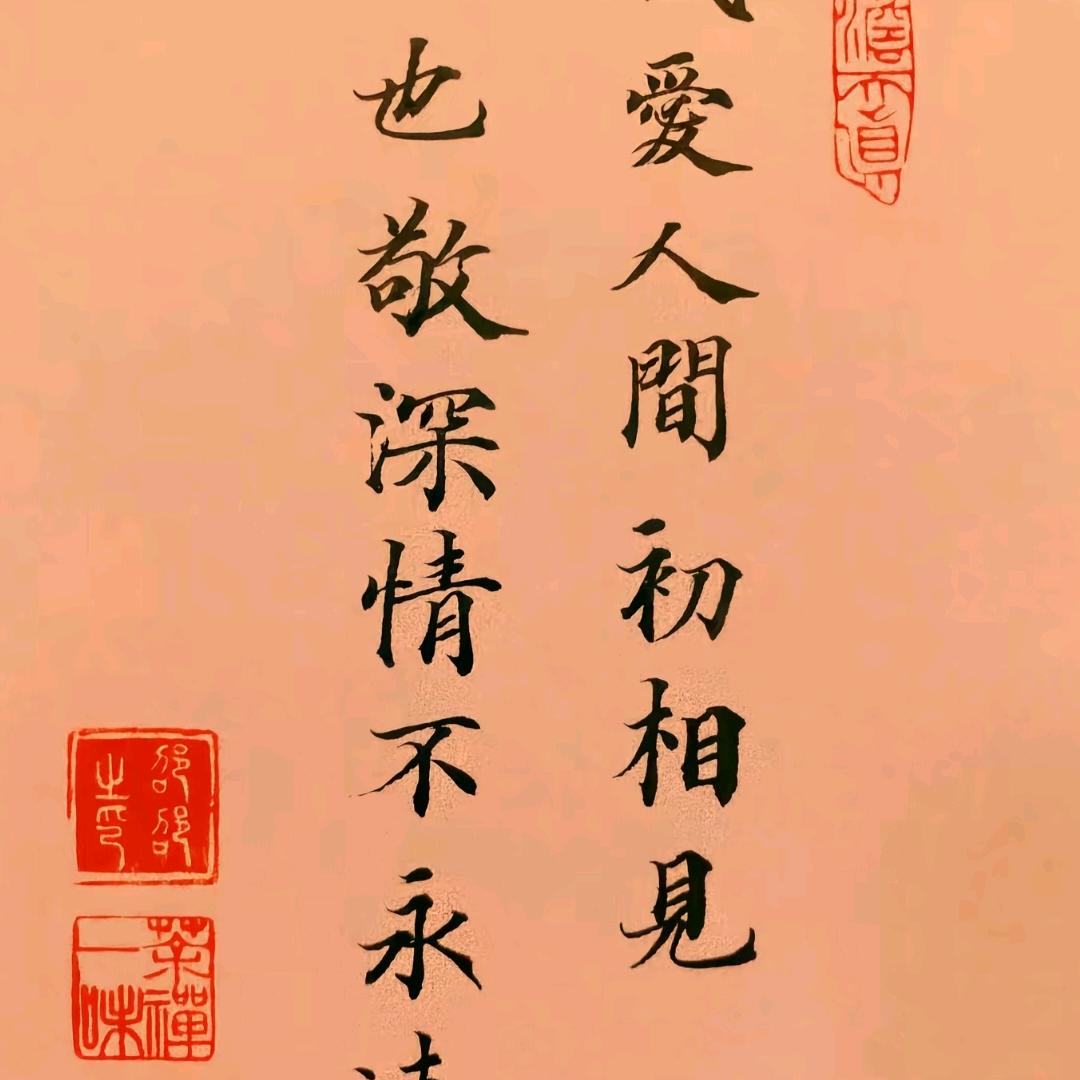 愛人間初相見
也敬深情不永
邵邵之印
茶禪一味